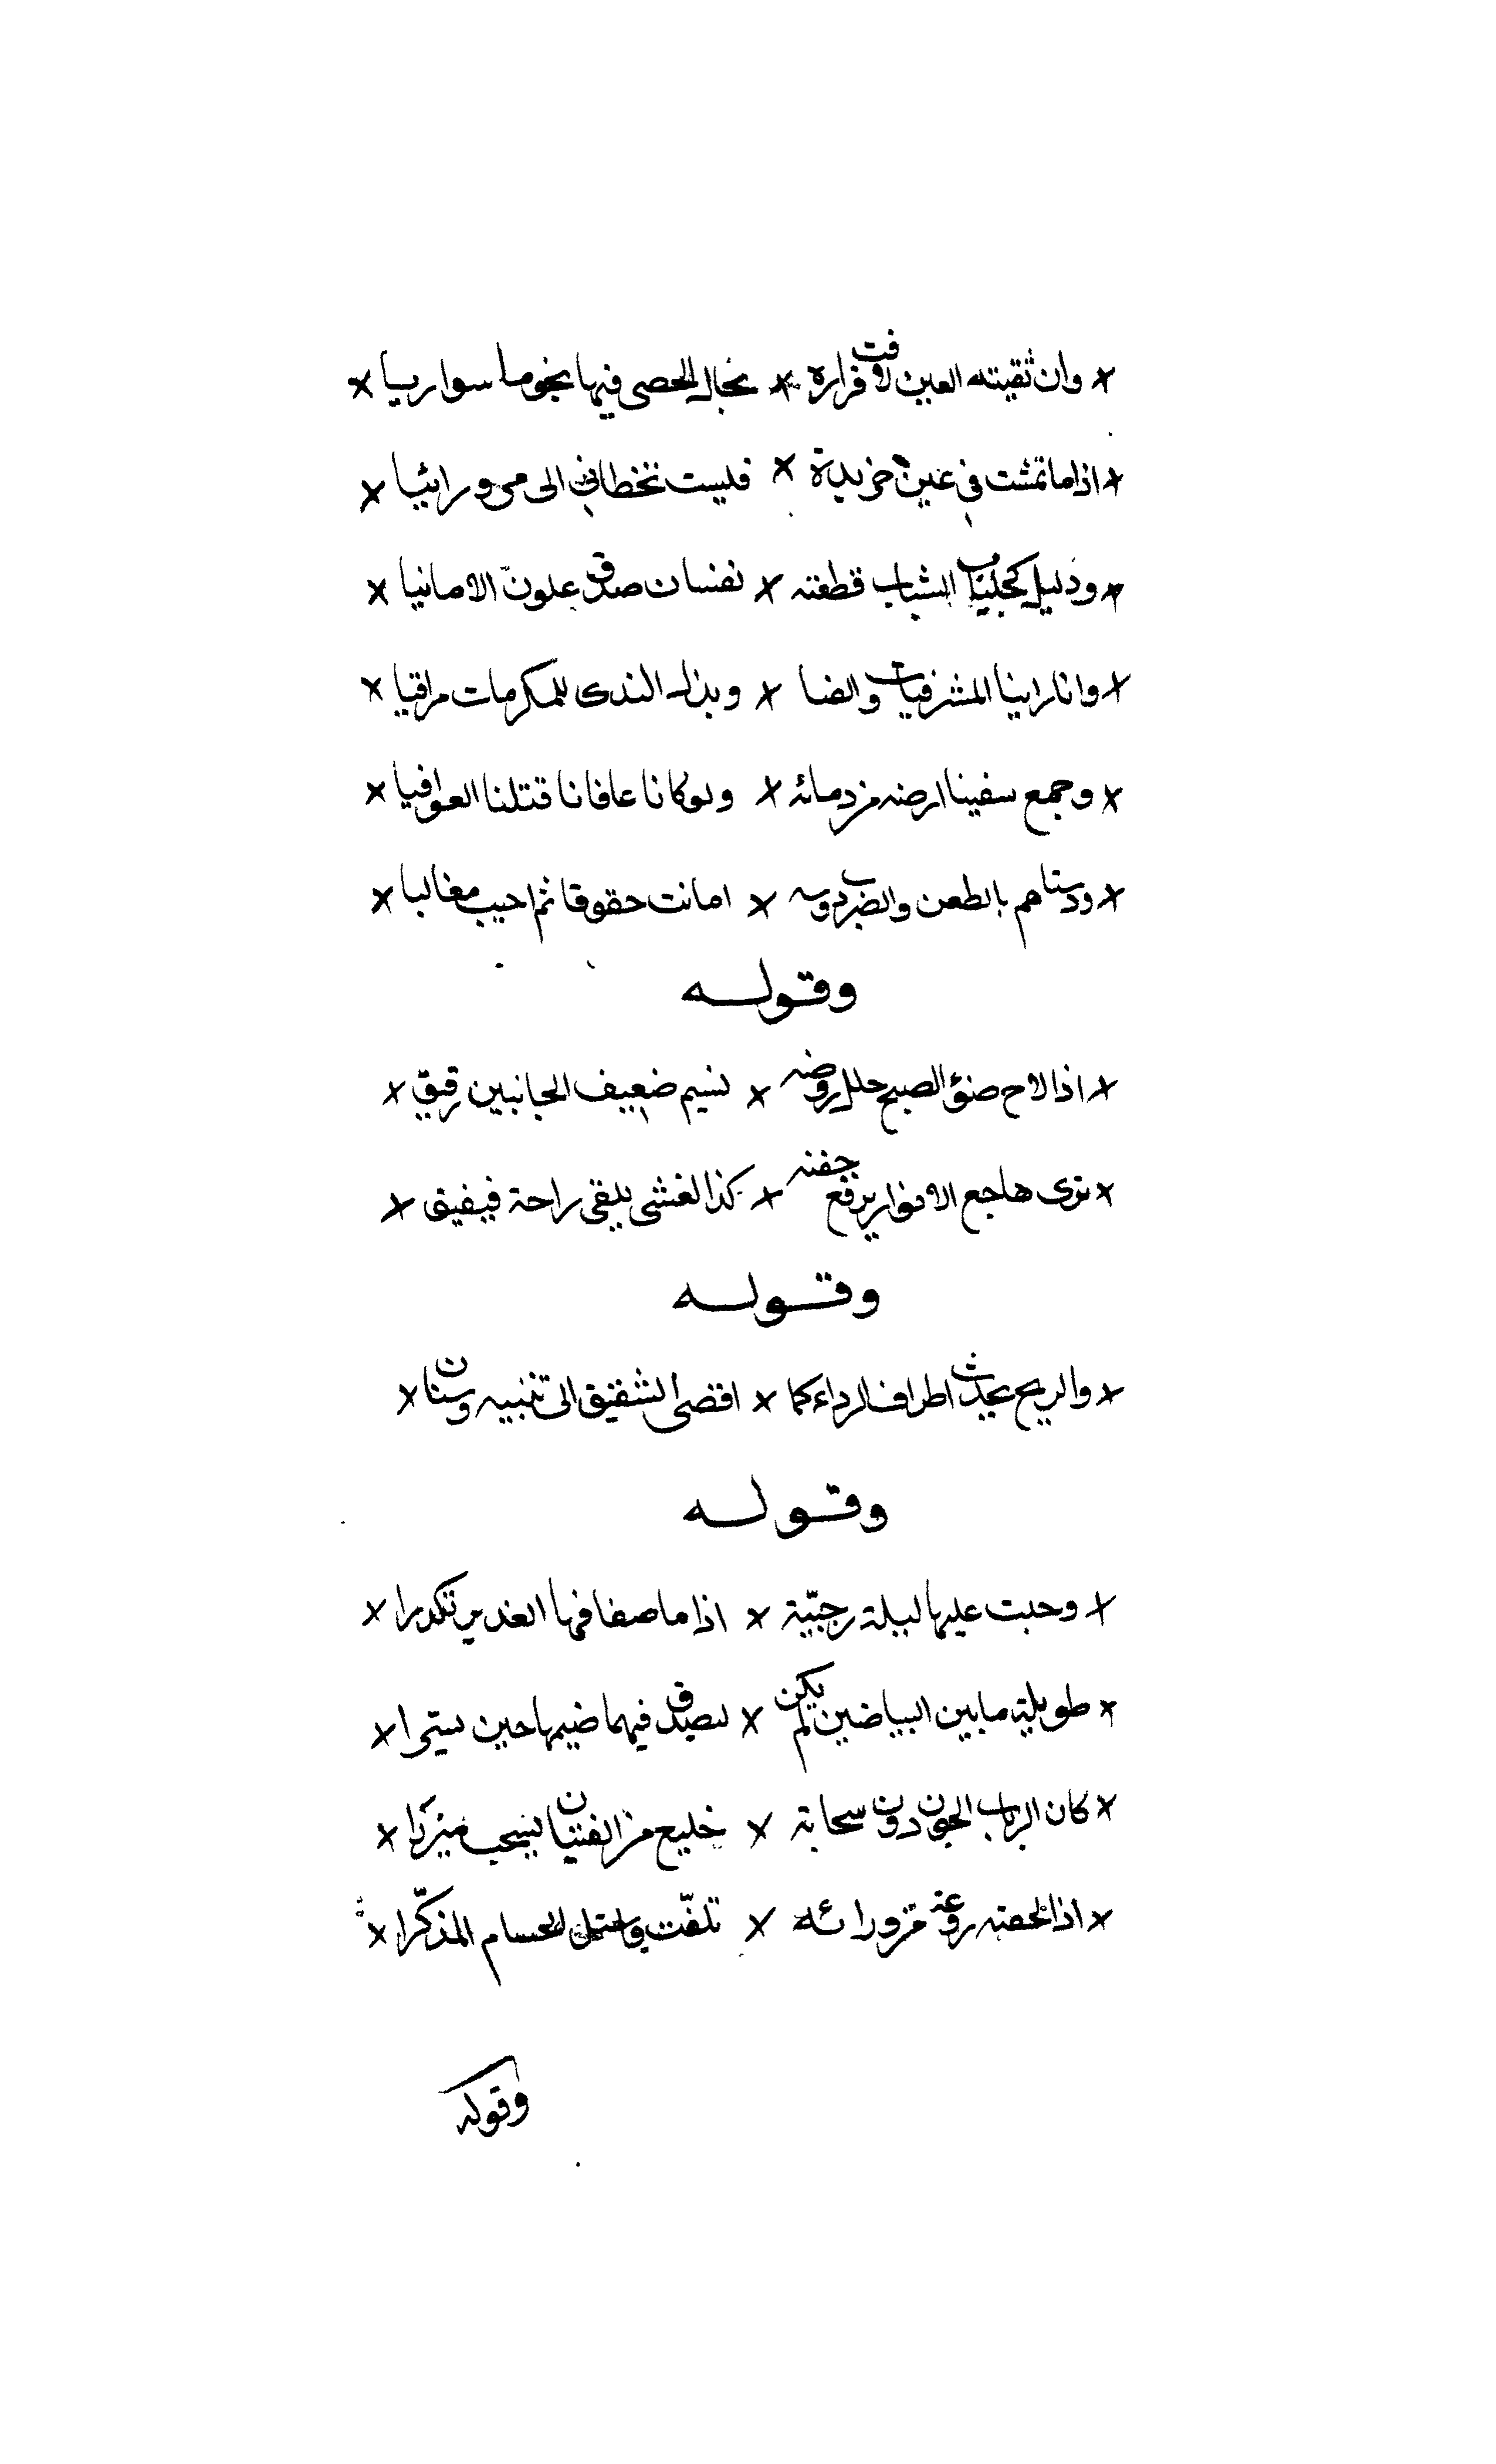 × وان ثقبته العين لاقت قراره × تخال الحصى فيها نجوما سواريا ×
× اذا ما تمشت في عين خريدة × فليست تخطاني الى من ورائيا ×
× وذليل كجلباب الشباب قطعته × نفسان صدق علون الامانيا ×
× وانا راينا المشرفيات والضبا × وبذل الندى للمكرمات مراقيا ×
× وجمع سفينا ارضه من دمائه × ولو كانا عافانا قتلنا العوافيا ×
× ودسناهم بالطعن والضرب دوسه × امانت حقوقا ثم احيت مغالبا ×
وقوله
× اذا لاح ضوء الصبح حلل روضه × نسيم ضعيف الجانبين رقيق ×
× ترى هاجع الانوار يرفع جفنه × كذا لغشى يلقى راحة فيفيق ×
وقوله
× والريح تجذب اطراف الرداء كما × افضى الشفيق الى تنبيه وسنان ×
وقوله
× وحبت عليها ليلة رجبية × اذا ما صفا فيها الغدير تكدرا ×
× طويلة ما بين البياضين لم يكن × ليصدق فيهما ضيمها حين ×
× كان الرباب الجون دون سحابة × خليع من الفتيان يسحب ميزرا ×
× اذا لحقته روعة من ورائه × تلفت واستل الحسام المذكرا ×
وقوله